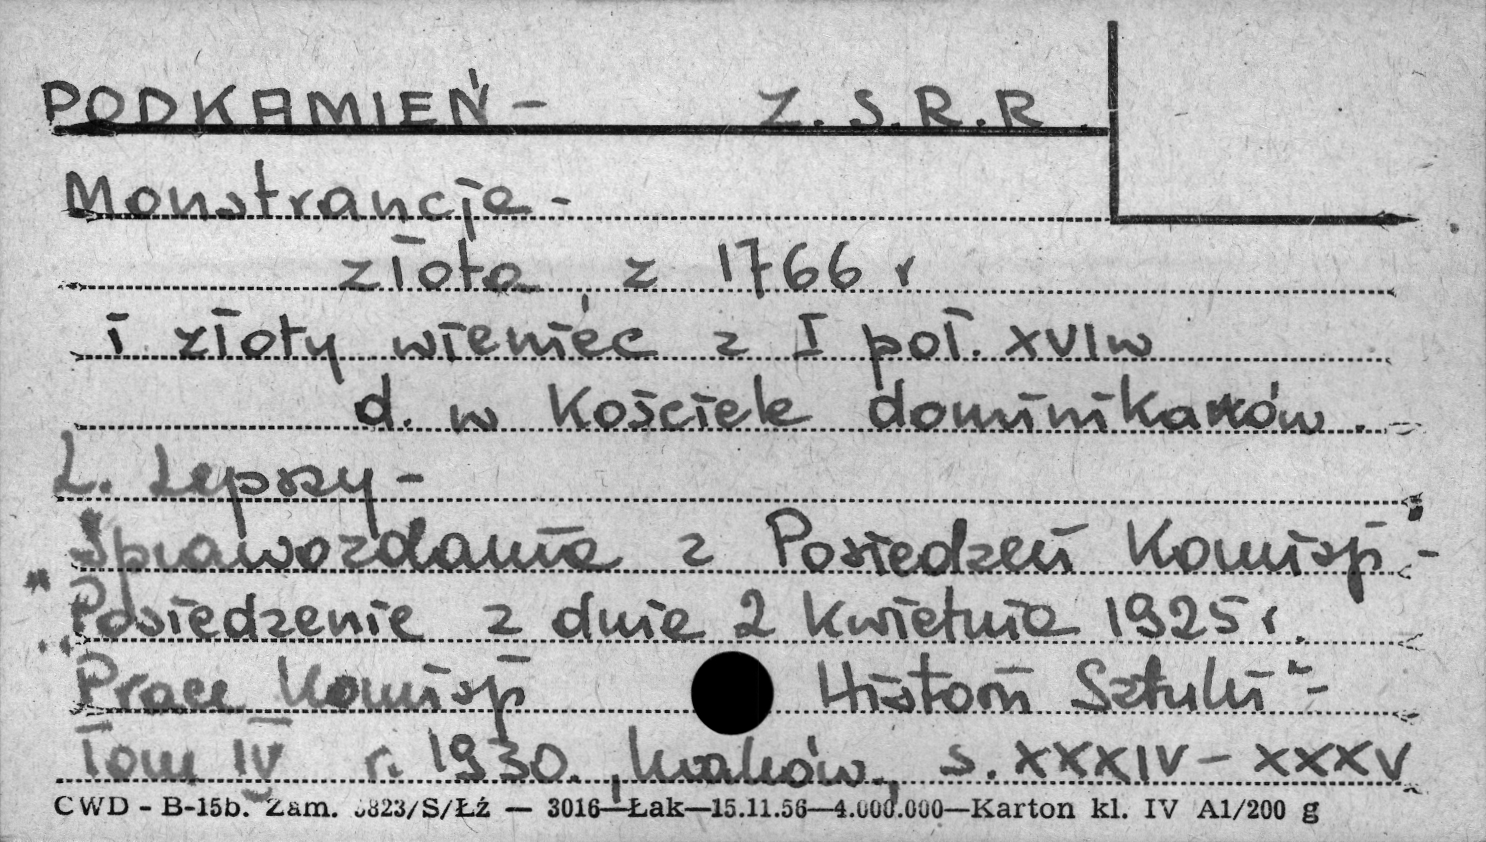 PODKAMIEŃ - Z.S.R.R.
Monstrancje -
złota z 1766 r
i złoty wieniec z I poł. XVI w
d. w Kościele dominikanów.
L. Lepszy -
Sprawozdania z Posiedzeń Komisji -
Posiedzenie z dnia 2 kwietnia 1925 r.
"Prace Komisji Historii Sztuki" -
Tom IV r. 1930, Kraków, s. XXXIV - XXXV
CWD - B-15b. Zam. 5823/S/Łź — 3016—Łak—15.11.56—4.000.000—Karton kl. IV A1/200 g